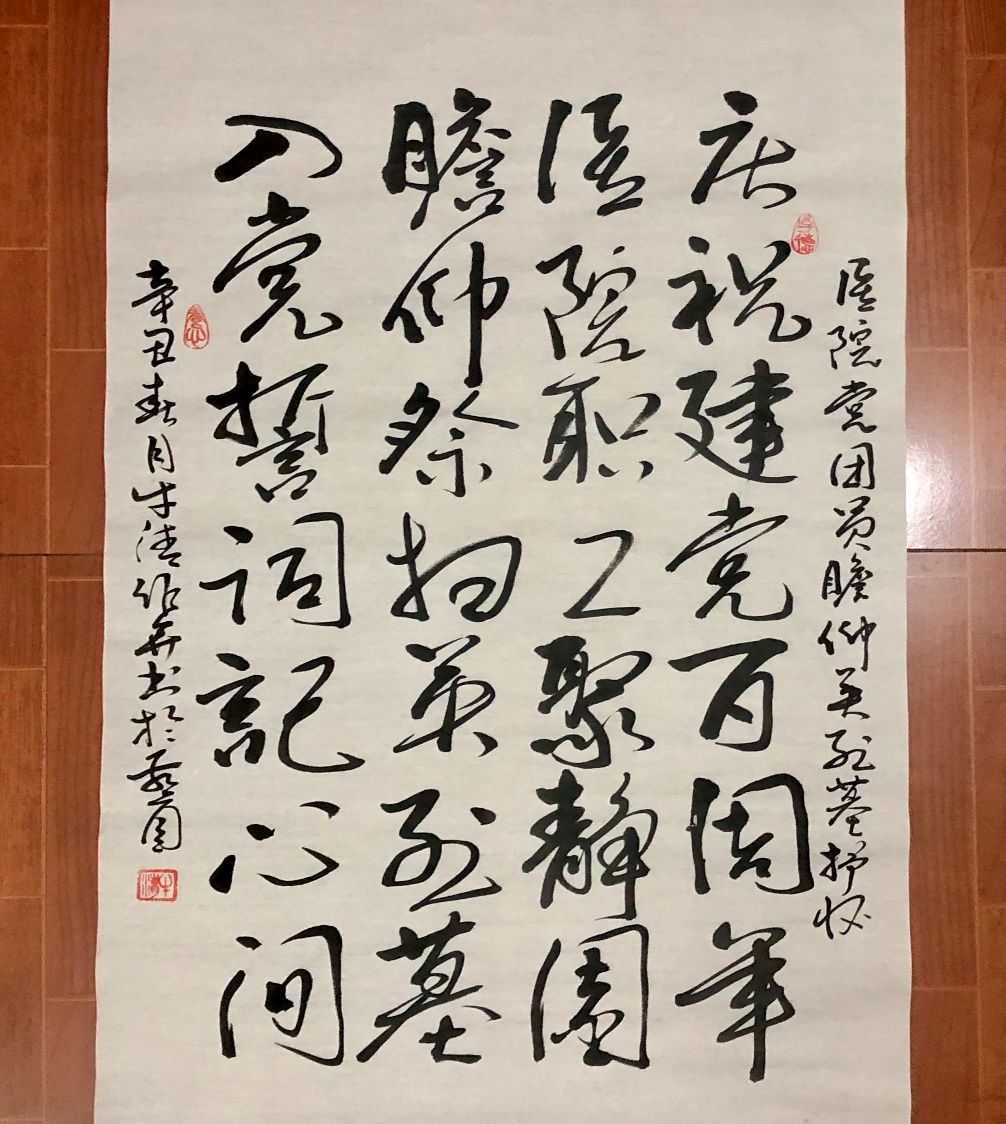 医院党团员瞻仰英烈墓抒怀
庆祝建党百周年
医院职工聚静园
瞻仰祭扫英烈墓
入党誓词記心间
辛丑春月牛清作并书於
牛清